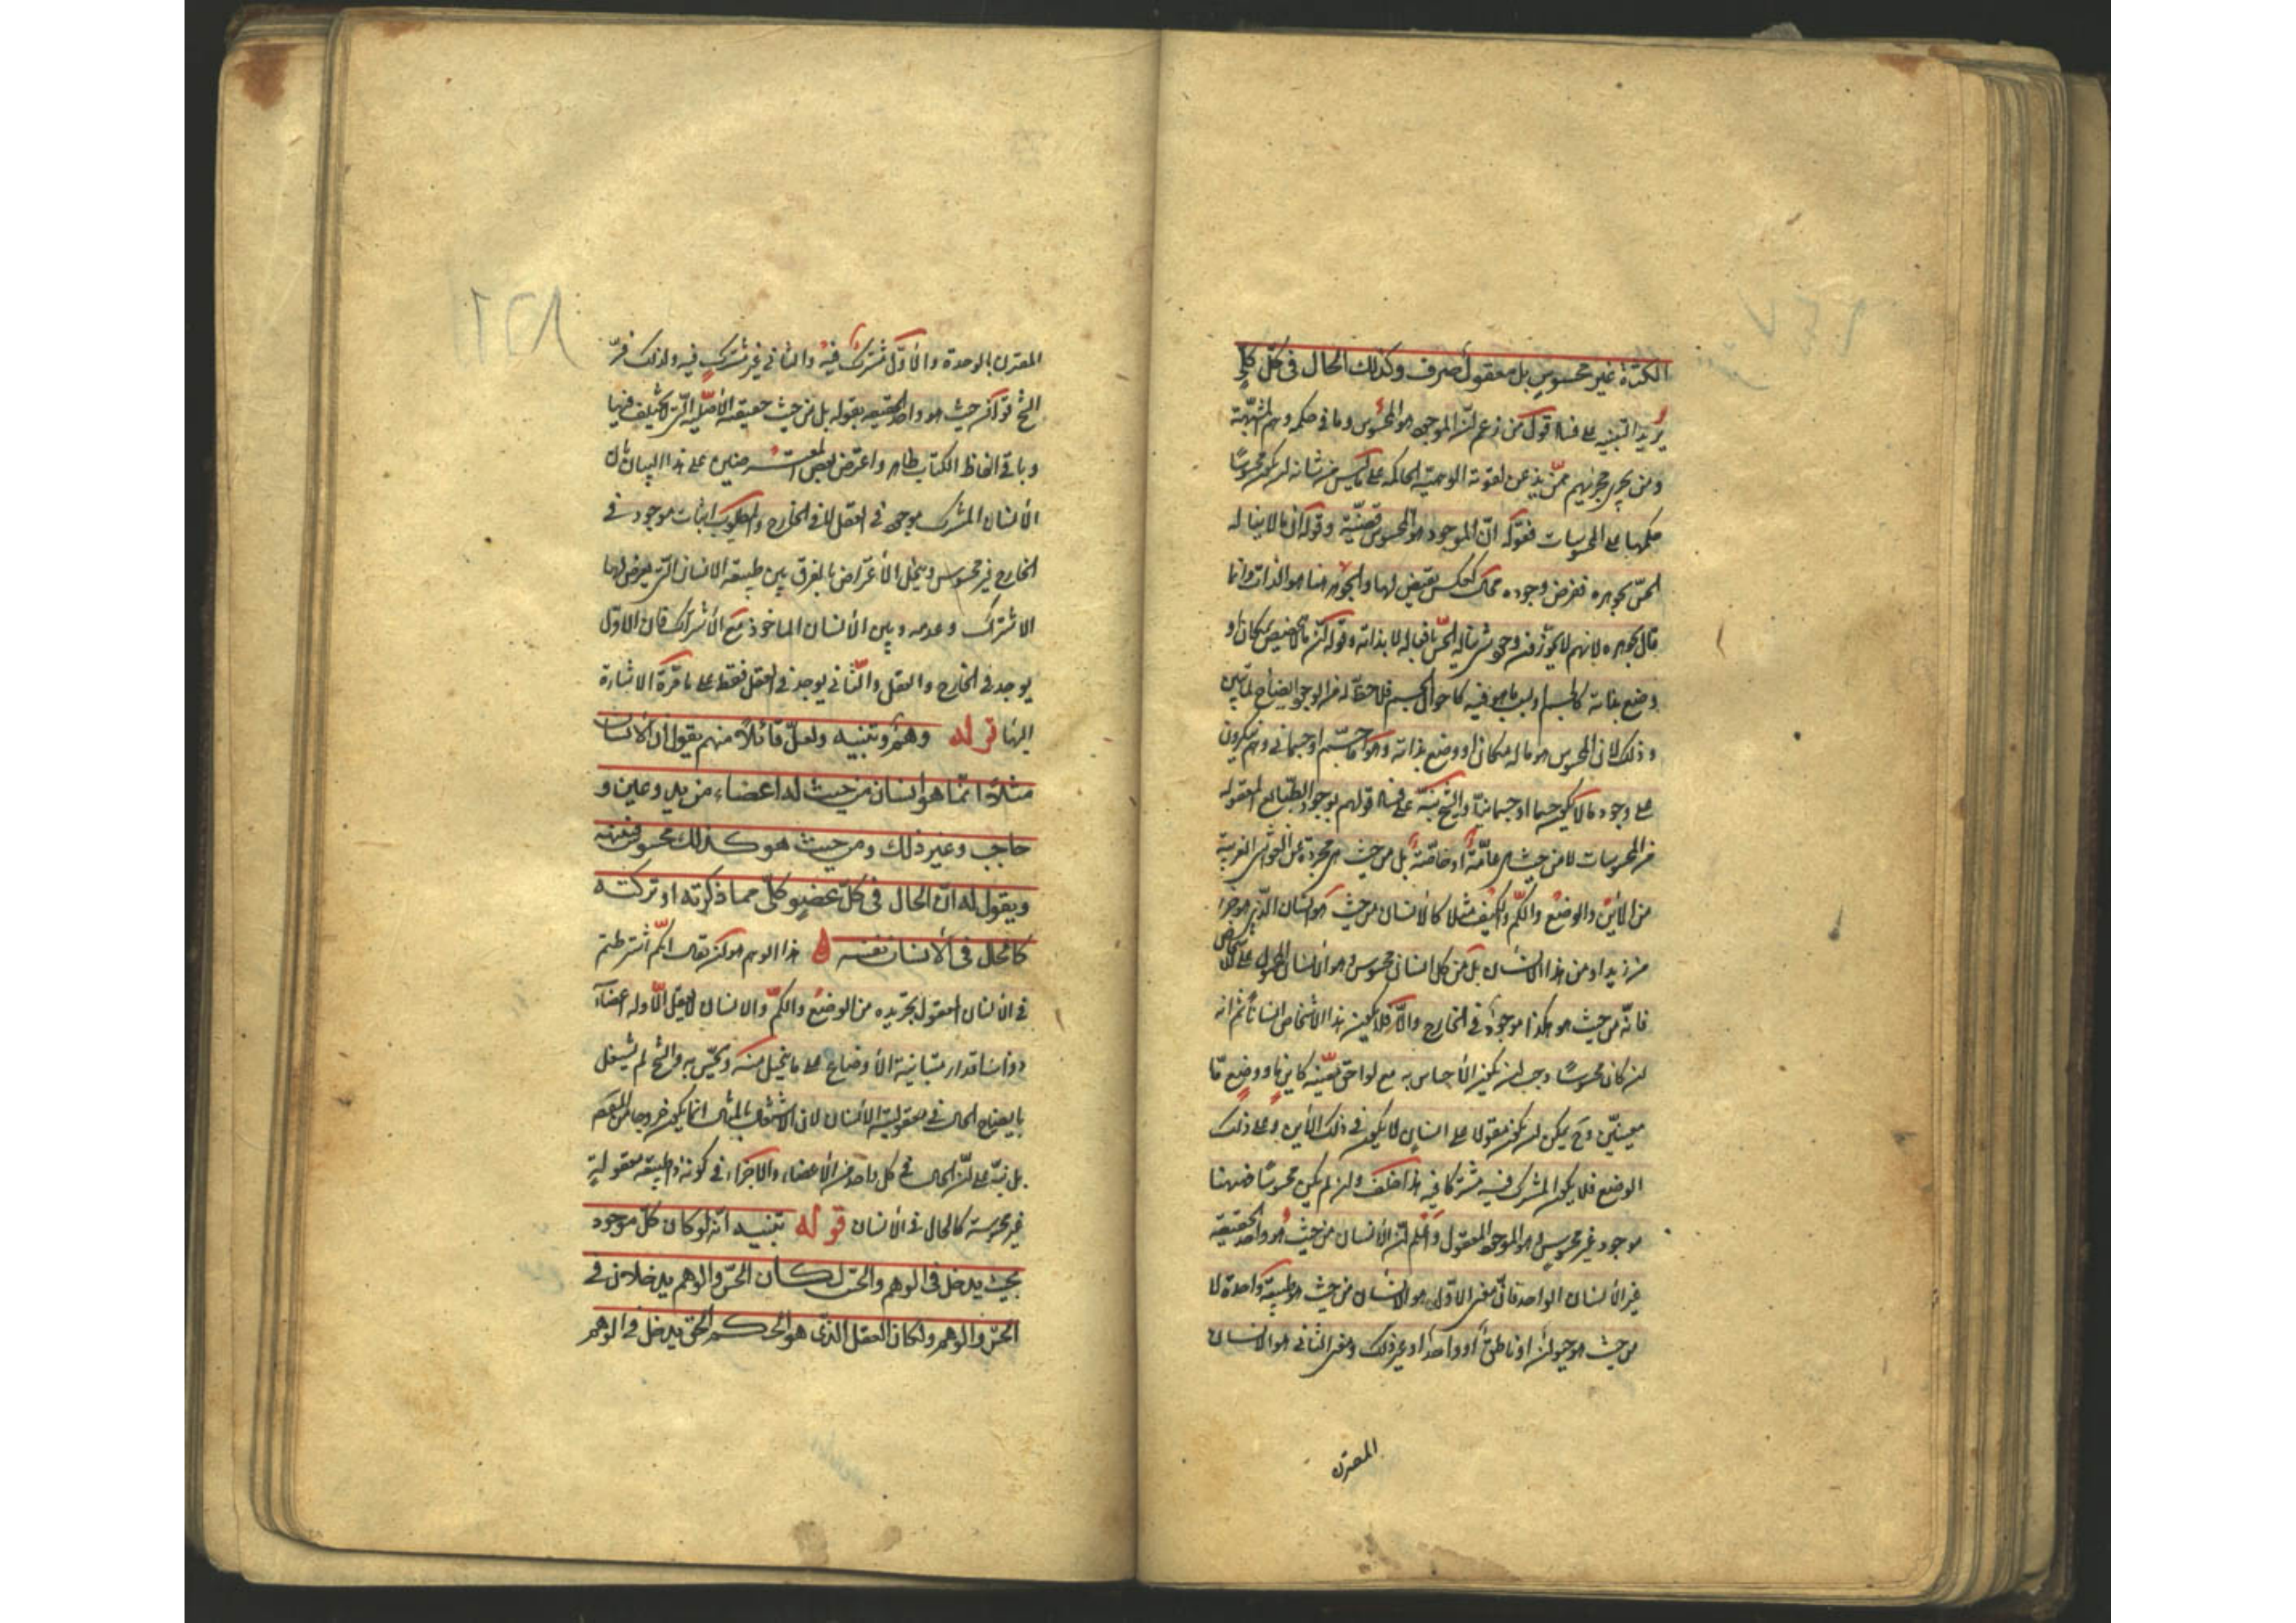 الكثرة غير محسوس بل معقول صرف وكذلك الحال في كل كلي
يريد التنبيه على فساد قول من زعم ان الموجود هو المحسوس وما في حكمه وهم المشبهة
ومن يجري مجريهم ممن يذعن لقوته الوهمية الحاكمة على ما ليس من شانه ان يكون محسوسا
حكمها على المحسوسات فقوله ان الموجود هو المحسوس قضية وقوله ان ما لا يناله
الحس بجوهره ففرض وجوده محال كعكس نقيض لها والجوهر هنا هو الذات وانما
قال بجوهره لانهم لا يجوزون وجود شئ يناله الحس بافعاله لا بذاته وقوله ان ما لا يتخصص بمكان او
وضع بذاته كالجسم او بسبب ما هو فيه كاحوال الجسم فلا حظ له من الوجود ايضاح لما سبق
وذلك لان المحسوس هو ما له مكان او وضع بذاته وهو اما جسم او جسماني وهم ينكرون
على وجود ما لا يكون جسما او جسمانيا والشيخ نبه على فساد قولهم بوجود الطبايع المعقولة
من المحسوسات لا من حيث هي عامة او خاصة بل من حيث هي مجردة عن الغواشي الغريبة
من الأين والوضع والكم والكيف مثلا كالانسان من حيث هو انسان الذي هو جزء
من زيد او من هذا الانسان بل من كل انسان محسوس وهو الانسان المحمول على الاشخاص
فانه من حيث هو هكذا موجود في الخارج والا فلا يكون هذا الاشخاص اناسا ثم انه
ان كان محسوسا وجب ان يكون الاحساس به مع لواحق معينة كاين ما ووضع ما
معينين وح يمكن ان يكون مقولا على انسان لا يكون في ذلك الأين وعلى ذلك
الوضع فلا يكون المشترك فيه مشتركا فيه هذا خلف وان لم يكن محسوسا فههنا
موجود غير محسوس وهو الموجود المعقول واعلم ان الانسان من حيث هو واحد الحقيقة
غير الانسان الواحد فان معنى الاول هو الانسان من حيث هو طبيعة واحدة لا
من حيث هو حيوان او ناطق او واحد او غير ذلك ومعنى الثاني هو الانسان
المقترن
المقترن بالوحدة والأول مشترك فيه والثاني غير مشترك فيه ولذلك فسر
الشيخ قوله من حيث هو واحد الحقيقة بقوله بل من حيث حقيقته الأصلية التي لا تختلف فيها
وباقي الفاظ الكتاب ظاهر واعترض بعض المعترضين على هذا البيان بان
الأنسان المشترك موجود في العقل لا في الخارج والمطلوب اثبات موجود في
الخارج غير محسوس وينحل الأعتراض بالفرق بين طبيعة الانسان التي يعرض لها
الاشتراك وعدمه وبين الأنسان الماخوذ مع الأشتراك فان الاول
يوجد في الخارج والعقل والثاني يوجد في العقل فقط على ما مرت الاشارة
اليها قوله وهم وتنبيه ولعل قائلا منهم يقول ان الانسان
مثلا انما هو انسان من حيث له اعضاء من يد وعين و
حاجب وغير ذلك ومن حيث هو كذلك محسوس فننبهه
ويقول له ان الحال في كل عضو كلي مما ذكرته او تركته
كالحال في الأنسان نفسه هذا الوهم هو ان يقال انكم اشترطتم
في الأنسان المعقول تجريده من الوضع والكم والانسان لا يعقل الا وله اعضاء
ذوات اقدار متباينة الأوضاع على ما يتخيل منه ويحس به والشيخ لم يشتغل
بايضاح الحال في معقولية الأنسان لان الاشتغال بالمثال انما يكون خروجا عن المقصود
بل نبه على ان الحال في كل واحد من الأعضاء والاجزاء في كونه ذا طبيعة معقولة
غير محسوسة كالحال في الأنسان قوله تنبيه انه لو كان كل موجود
بحيث يدخل في الوهم والحس لكان الحس والوهم يدخلان في
الحس والوهم ولكان العقل الذي هو الحكم الحق يدخل في الوهم